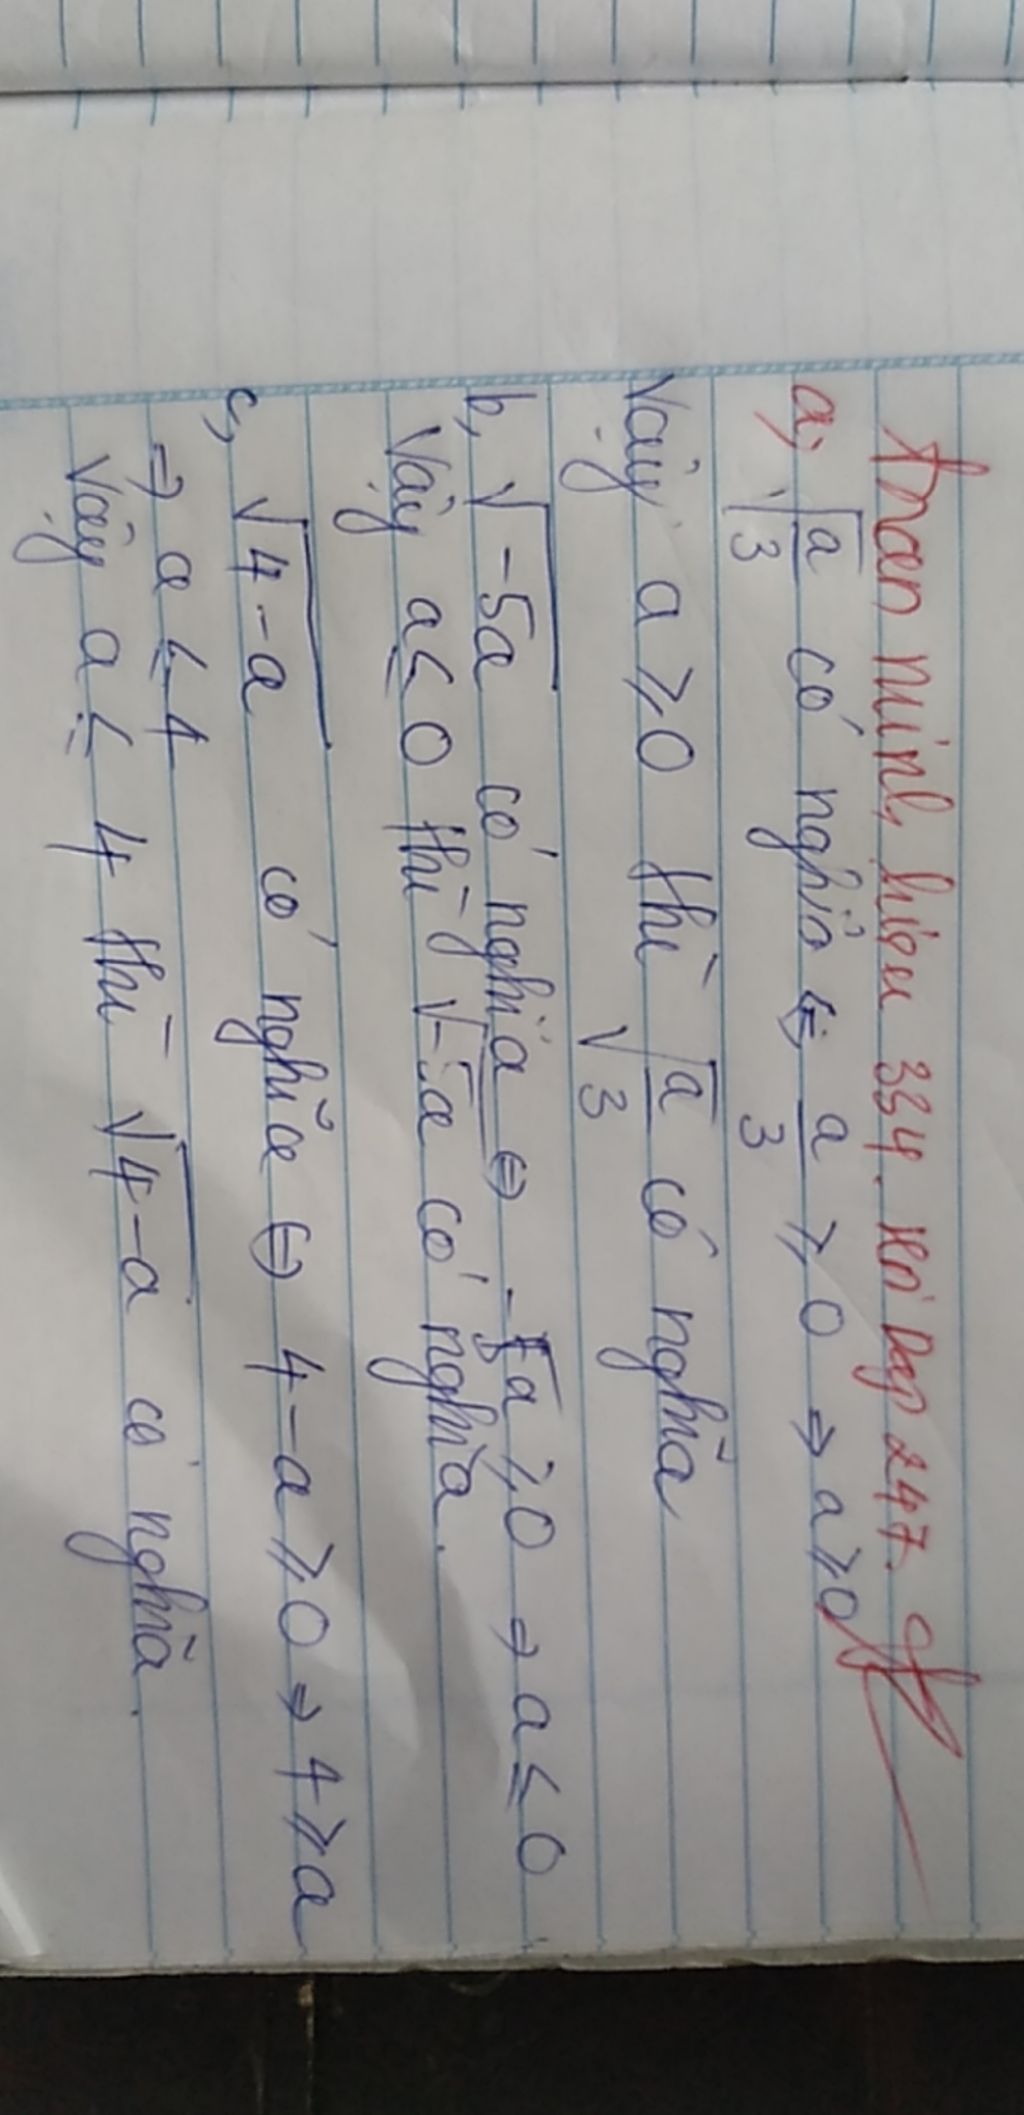 Tran minh hieu 334. Hoi Dap 247.
a, √a/3 có nghĩa ⇔ a/3 ≥ 0 ⇒ a ≥ 0
Vậy a ≥ 0 thì √a/3 có nghĩa
b, √-5a có nghĩa ⇔ -5a ≥ 0 ⇒ a ≤ 0
Vậy a ≤ 0 thì √-5a có nghĩa.
c, √4-a có nghĩa ⇔ 4-a ≥ 0 ⇒ 4 ≥ a
⇒ a ≤ 4
Vậy a ≤ 4 thì √4-a có nghĩa.